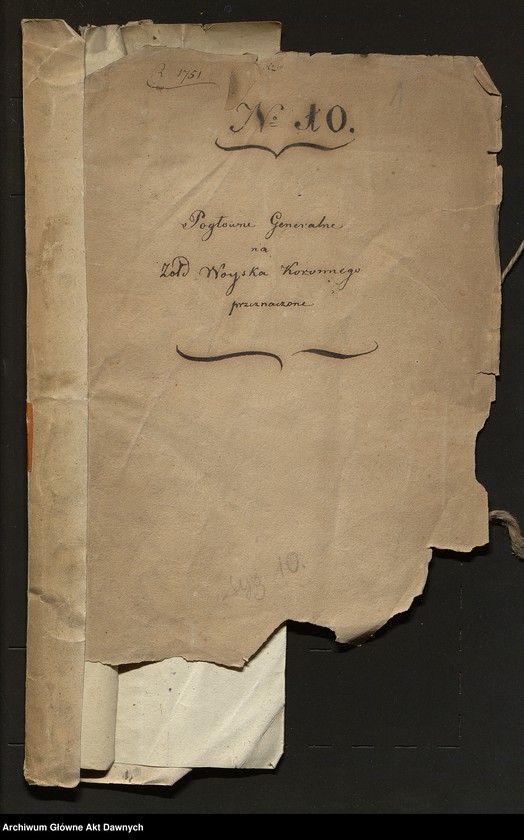 R 1751
1
No 10.
Pogłowne Generalne
na
Żołd Woyska Koronnego
przeznaczone
syg 10.
Archiwum Główne Akt Dawnych